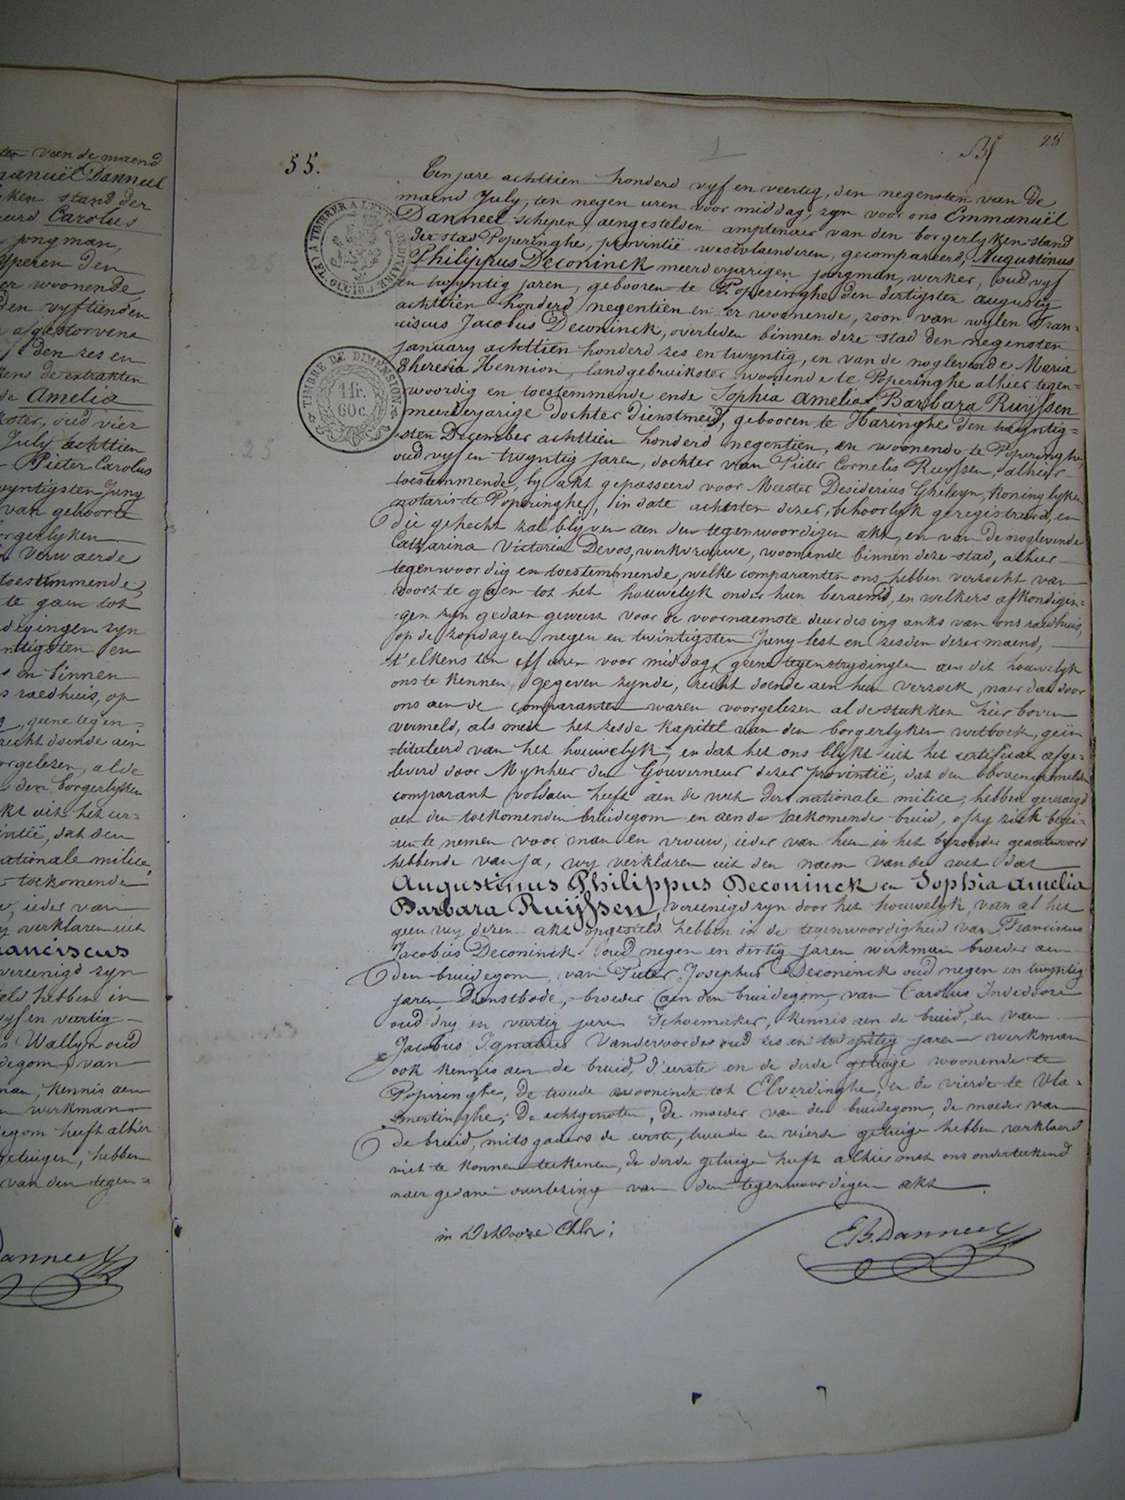 ten van de maend
manuël Danneel
lyken stand der
eerd Carolus
jongman,
Yperen den
er woonende
den vyftienden
afgestorvene
den zes en
de extrakten
de Amelia
oud vier
July achttien
Pieter Carolus
wyntigsten Juny
van geboorte
orgerlyken
Verwaerde
toestemmende,
te gaen tot
degingen zyn
ntigsten en
en binnen
s raedhuis, op
geene tegen=
recht doende aen
orgelezen, al de
den borgerlyken
kt uit het cer=
vintië, dat den
nationale milicie
toekomende
ieder van
verklaren uit
ranciscus
vereenigd zyn
hebben in
vyf en veertig
Wallyn oud
degom, van
man, kennis aen
werkman
degom heeft alhier
getuigen, hebben
van den tegen=
Danneel
28
55.
TIMBRE DE DIMENSION
1 fr.
60 c.
25
Een jare achttien honderd vyf en veertig, den negensten van de
maend July, ten negen uren voor middag, zyn voor ons Emmanuël
Danneel schepen, aengestelden amptenaer van den borgerlyken stand
der stad Poperinghe, provintië westvlaenderen, gecompareerd, Augustinus
Philippus Deconinck meerderjarigen jongman, werker, oud vyf
en twyntig jaren, gebooren te Poperinghe den dertigsten augusty
achttien honderd negentien en er woonende, zoon van wylen Fran=
ciscus Jacobus Deconinck, overleden binnen deze stad den negensten
january achttien honderd zes en twyntig, en van de noglevende Maria
Theresia Hennion, landgebruikster woonende te Poperinghe alhier tegen=
woordig en toestemmende ende Sophia Amelia Barbara Ruyssen
meerderjarige dochter dienstmeid, gebooren te Haringhe den twyntig=
sten December achttien honderd negentien, en woonende te Poperinghe,
oud vyf en twyntig jaren, dochter van Pieter Cornelis Ruyssen, alhier
toestemmende, by akt gepasseerd voor Meester Desiderius Gheleyn, koninglyken
notaris te Poperinghe, in date achtsten dezer, behoorlyk geregistreerd, en
die gehecht zal blyven aen den tegenwoordigen akt, en van de noglevende
Catharina Victoria Devos, werkvrouwe, woonende binnen deze stad, alhier
tegenwoordig en toestemmende, welke comparanten ons hebben verzocht van
voort te gaen tot het houwelyk onder hun beraemd, en welkers afkondigin=
gen zyn gedaen geweest voor de voornaemste deur des ingangs van ons raedhuis,
op de zondagen negen en twintigsten Juny lest en zesden dezer maend,
t'elkens ten elf uren voor middag, geene tegenstrydinglen aen dit houwelyk
ons te kennen gegeven zynde, recht doende aen hun verzoek, naer dat door
ons aen de comparanten waren voorgelezen al de stukken hier boven
vermeld, als mede het zesde kapitel van den borgerlyken wetboek, geïn=
tituleerd van het houwelyk, en dat het ons blykt uit het certificat afge=
leverd door Mynheer den Gouverneur dezer provintië, dat den bovengemelden
comparant voldaen heeft aen de wet der nationale milicie, hebben gevraegd
aen den toekomenden bruidegom en aen de toekomende bruid, of zy ziek begee=
ren te nemen voor man en vrouw, ieder van hun in het byzonder geantwoord
hebbende van ja, wy verklaren uit den naem van de wet dat
Augustinus Philippus Deconinck en Sophia Amelia
Barbara Ruyssen, vereenigd zyn door het houwelyk, van al het
geen wy dezen akt opgesteld hebben in de tegenwoordigheid van Franciscus
Jacobus Deconinck oud negen en dertig jaren werkman broeder aen
den bruidegom, van Pieter Josephus Deconinck oud negen en twyntig
jaren Dienstbode, broeder aen den bruidegom, van Carolus Indevooze
oud dry en veertig jaren Schoemaker, kennis aen de bruid, en van
Jacobus Ignatius Vandervoorde oud zes en twyntig jaren werkman
ook kennis aen de bruid, d'eerste en de derde getuige woonende te
Poperinghe, de tweede woonende tot Elverdinghe, en de vierde te Vla=
mertinghe; De echtgenoten, de moeder van den bruidegom, de moeder van
de bruid, mits gaders de eerste, tweede en vierde getuige hebben verklaerd
niet te konnen teekenen, de derde getuige heeft alhier met ons onderteekend
naer gedane overlezing van den tegenwoordigen akt
E B. Danneel